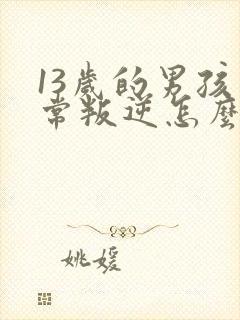 13歲的男孩
常叛逆怎麼
姚媛